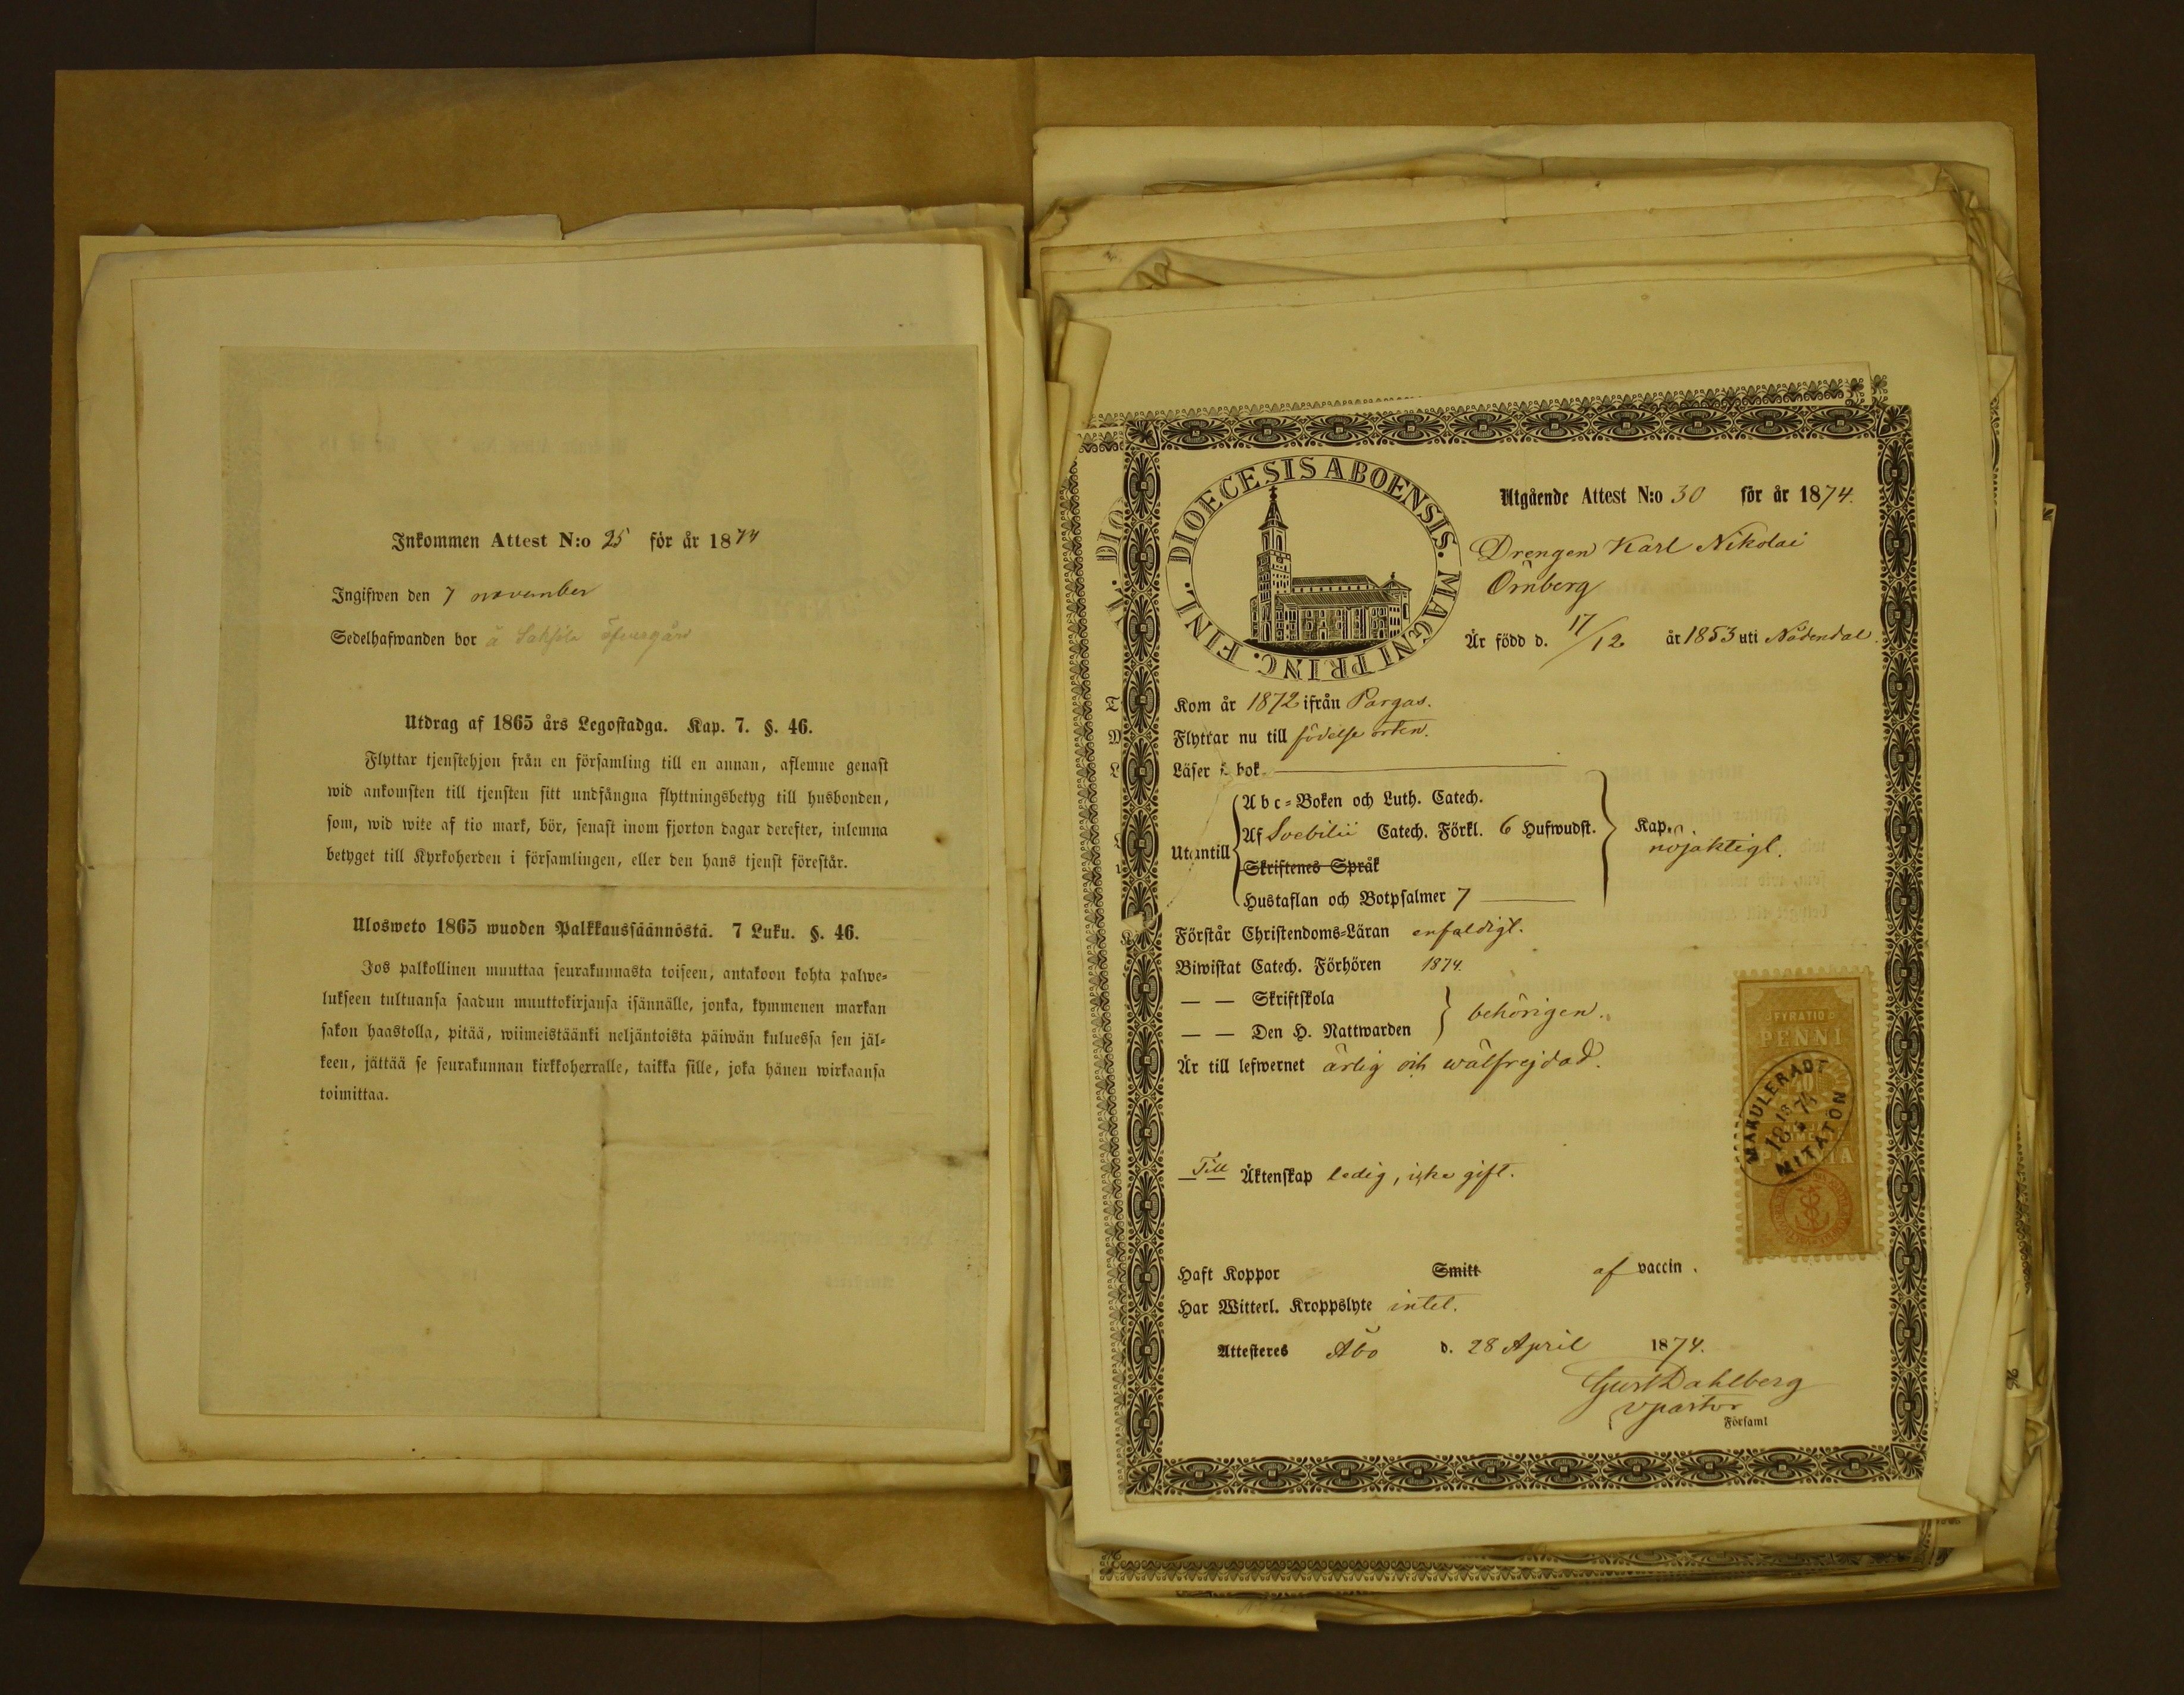 Inkommen Attest N:o 25 för år 1874
Ingifwen den 7 november
Sedelhafwanden bor å öfvergård
Utdrag af 1865 års Legostadga. Kap. 7. §. 46.
Flyttar tjenstehjon från en församling till en annan, aflemne genast
wid ankomsten till tjensten sitt undfångna flyttningsbetyg till husbonden,
som, wid wite af tio mark, bör, senast inom fjorton dagar derefter, inlemna
betyget till Kyrkoherden i församlingen, eller den hans tjenst förestår.
Ulosweto 1865 wuoden Palkkaussäännöstä. 7 Luku. §. 46.
Jos palkollinen muuttaa seurakunnasta toiseen, antakoon kohta palwe-
lukseen tultuansa saadun muuttokirjansa isännälle, jonka, kymmenen markan
sakon haastolla, pitää, wiimeistäänki neljäntoista päiwän kuluessa sen jäl-
keen, jättää se seurakunnan kirkkoherralle, taikka sille, joka hänen wirkaansa
toimittaa.
DIOECESIS ABOENSIS. MAGNI PRINC. FINL.
Utgående Attest N:o 30 för år 1874.
Drengen Karl Nikolai
Örnberg
Är född d. 17/12 år 1853 uti Nådendal.
Kom år 1872 ifrån Pargas.
Flyttar nu till födelse orten.
Läser i bok
Abc-Boken och Luth. Catech.
Utantill Af Svebilii Catech. Förkl. 6 Hufwudst. Kap. nöjaktigt.
Skriftenes Språk
Hustaflan och Botpsalmer 7
Förstår Christendoms-Läran enfaldigt.
Biwistat Catech. Förhören 1874.
— — Skriftskola
— — Den H. Nattwarden behörigen.
Är till lefwernet ärlig och wälfrejdad.
Till Äktenskap ledig, icke gift.
Haft Koppor Smitt af vaccin.
Har Witterl. Kroppslyte intet.
Attesteres Åbo d. 28 April 1874.
Gust Dahlberg
v pastor
Församl
FYRATIO
PENNI
MAKULERADT
MITÄTÖN